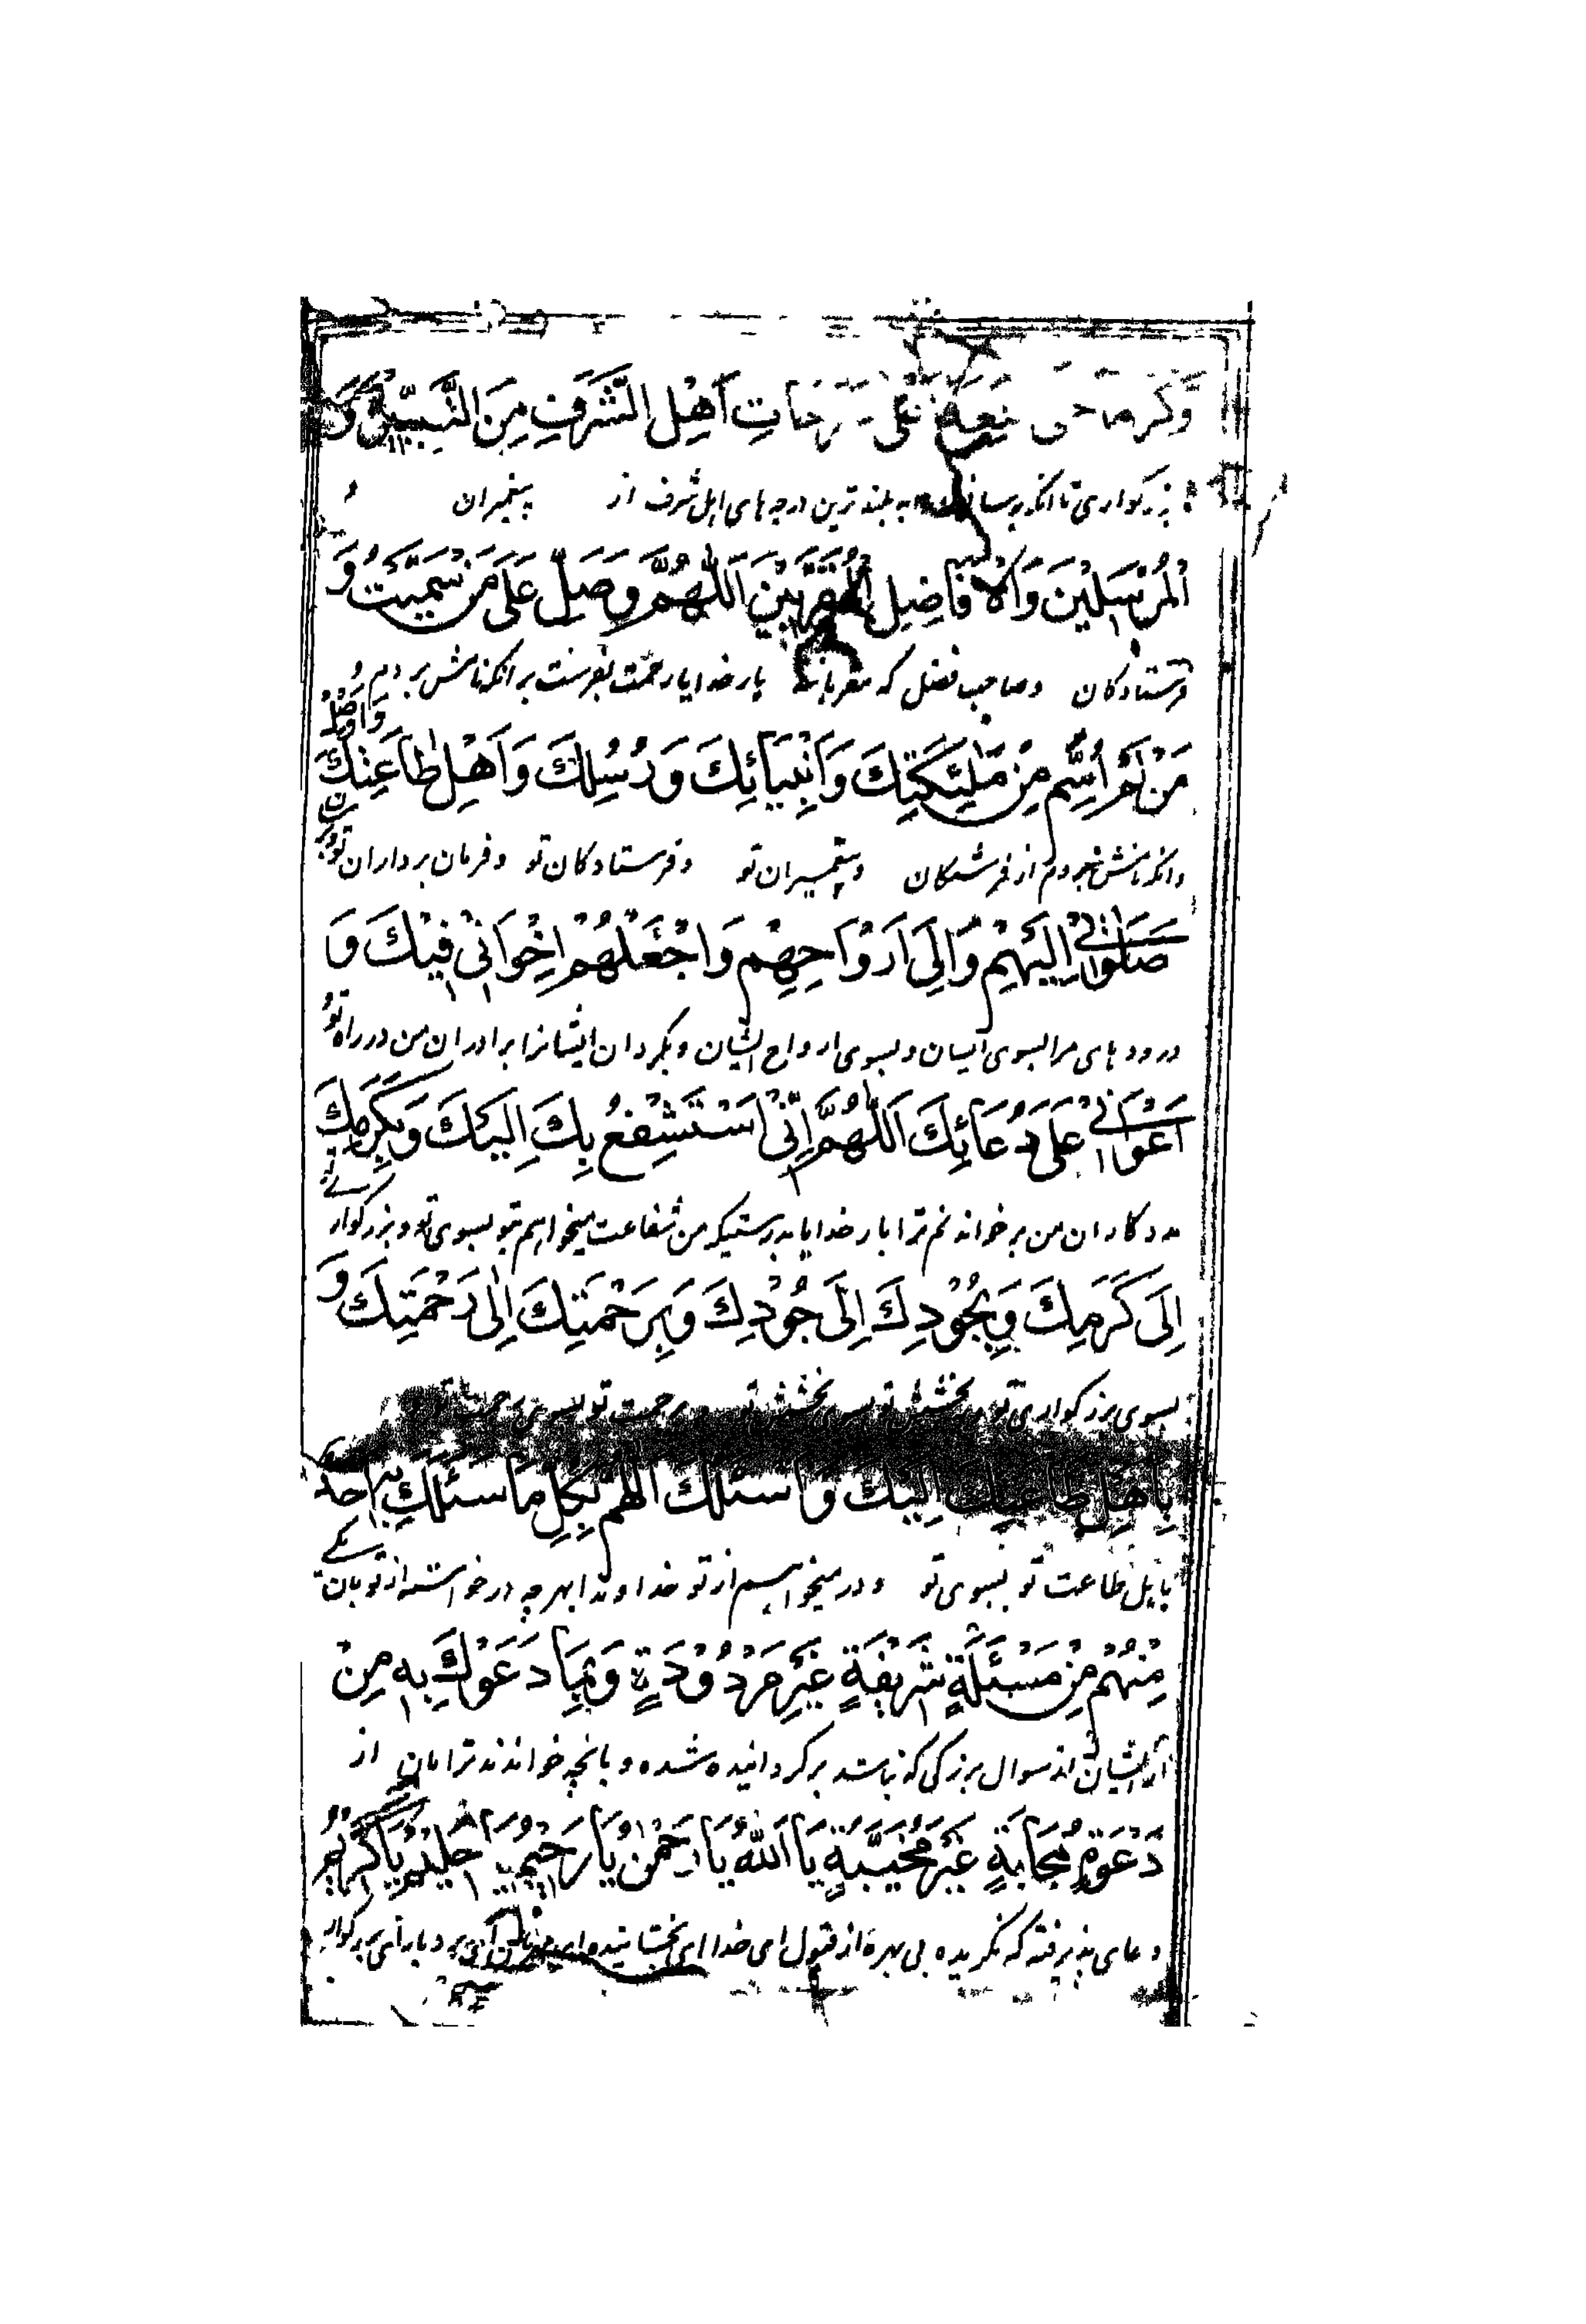 وَكَرَ حَتّى دَرَجَاتِ اَهْلِ الشَّرَفِ مِنَ النَّبِيّينَ وَ
بزرکواری تا انکه برسانی به بلندترین درجه های اهل شرف از پیغمبران و
الْمُرْسَلِيْنَ وَالْاَفَاضِلِ الْمُقَرَّبِيْنَ اَللّٰهُمَّ وَصَلِّ عَلٰى مَنْ سَمَّيْتُ وَ
فرستادکان و صاحب فضل که مقربانند بار خدایا رحمت بفرست بر انکه نامش بردم و
مَنْ لَمْ اُسَمِّ مِنْ مَلٰئِكَتِكَ وَاَنْبِيَائِكَ وَرُسُلِكَ وَاَهْلِ طَاعَتِكَ وَاَوْصِلْ
وانکه نامش نبردم از فرشتکان و پیغمبران تو و فرستادکان تو و فرمان برداران تو و برسان
صَلَوٰاتِيْ اِلَيْهِمْ وَاِلٰى اَرْوَاحِهِمْ وَاجْعَلْهُمْ اِخْوَانِيْ فِيْكَ وَ
درود های مرا بسوی ایشان و بسوی ارواح ایشان و بکردان ایشانرا برادران من در راه تو و
اَعْوَانِيْ عَلٰى دُعَائِكَ اَللّٰهُمَّ اِنِّيْ اَسْتَشْفِعُ بِكَ اِلَيْكَ وَبِكَرَمِكَ
مددکاران من بر خواندنم ترا بار خدایا بدرستیکه من شفاعت میخواهم بتو بسوی تو و بزرکواری
اِلٰى كَرَمِكَ وَبِجُوْدِكَ اِلٰى جُوْدِكَ وَبِرَحْمَتِكَ اِلٰى رَحْمَتِكَ وَ
بسوی بزرکواری تو و بخشش تو بسوی بخشش تو و برحمت تو بسوی رحمت تو
بِاَهْلِ طَاعَتِكَ اِلَيْكَ وَاَسْئَلُكَ اللّٰهُمَّ بِكُلِّ مَا سَئَلَكَ بِهِ اَحَدٌ
باهل طاعت تو بسوی تو و در میخواهم از تو خداوندا بهر چه درخواسته از تو بان یکی
مِنْهُمْ مِنْ مَسْئَلَةٍ شَرِيْفَةٍ غَيْرِ مَرْدُوْدَةٍ وَبِمَا دَعَوْكَ بِهِ مِنْ
از ایشان از سوال بزرکی که نباشد برکردانیده شده و بانچه خواندند ترا بان از
دَعْوَةٍ مُجَابَةٍ غَيْرِ مُخَيَّبَةٍ يَا اَللّٰهُ يَا رَحْمٰنُ يَا رَحِيْمُ يَا حَلِيْمُ يَا كَرِيْمُ
دعای پذیرفته که نکردیده بی بهره از قبول ای خدا ای بخشاینده ای مهربان ای بردبار ای بزرکوار